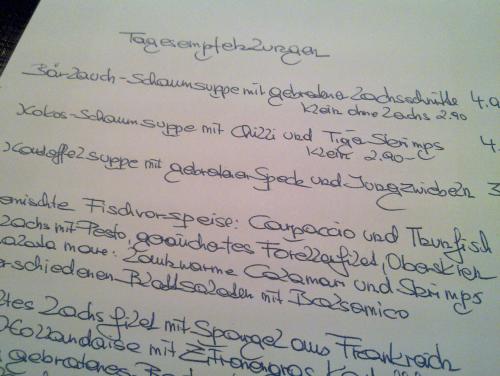 Tagesempfehlungen
Bärlauch-Schaumsuppe mit gebratene Lachsschnitte 4.9
Klein ohne Lachs 2.90
Kokos-Schaumsuppe mit Chilli und Tiger Skrimps 4.
Klein 2.90-
Kartoffelsuppe mit gebratener Speck und Jungzwiebeln 3
emischte Fischvorspeise: Carpaccio und Thunfisch
Lachs mit Pesto, geräuchertes Forellenfilet, Oberskren
salata mare: Lauwarme Calamari und Skrimps
erschiedenen Blattsalaten mit Balsamico
tes Lachsfilet mit Spargel aus Frankreich
Hollandaise mit Zitronengras
gebratenes